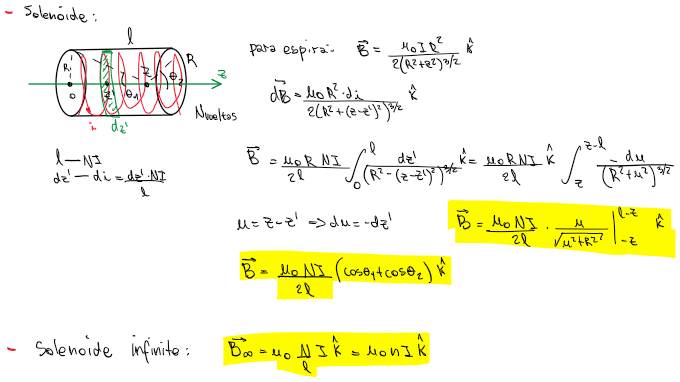 - Solenoide:
l
R R
0 z' θ₁ z θ₂ z
i dz' N vueltas
para espira: B⃗ = μ₀IR² / 2(R²+z²)^3/2 k̂
dB⃗ = μ₀R²·di / 2(R²+(z-z')²)^3/2 k̂
l — NI
dz' — di = dz'·NI / l
B⃗ = μ₀R NI / 2l ∫₀^l dz' / (R²-(z-z')²)^3/2 k̂ = μ₀RNI / 2l k̂ ∫_z^z-l -du / (R²+u²)^3/2
u = z-z' => du = -dz'
B⃗ = μ₀NI / 2l · u / √(u²+R²) |_-z^l-z k̂
B⃗ = μ₀NI / 2l (cosθ₁+cosθ₂) k̂
- Solenoide infinito: B⃗∞ = μ₀ N/l I k̂ = μ₀nI k̂